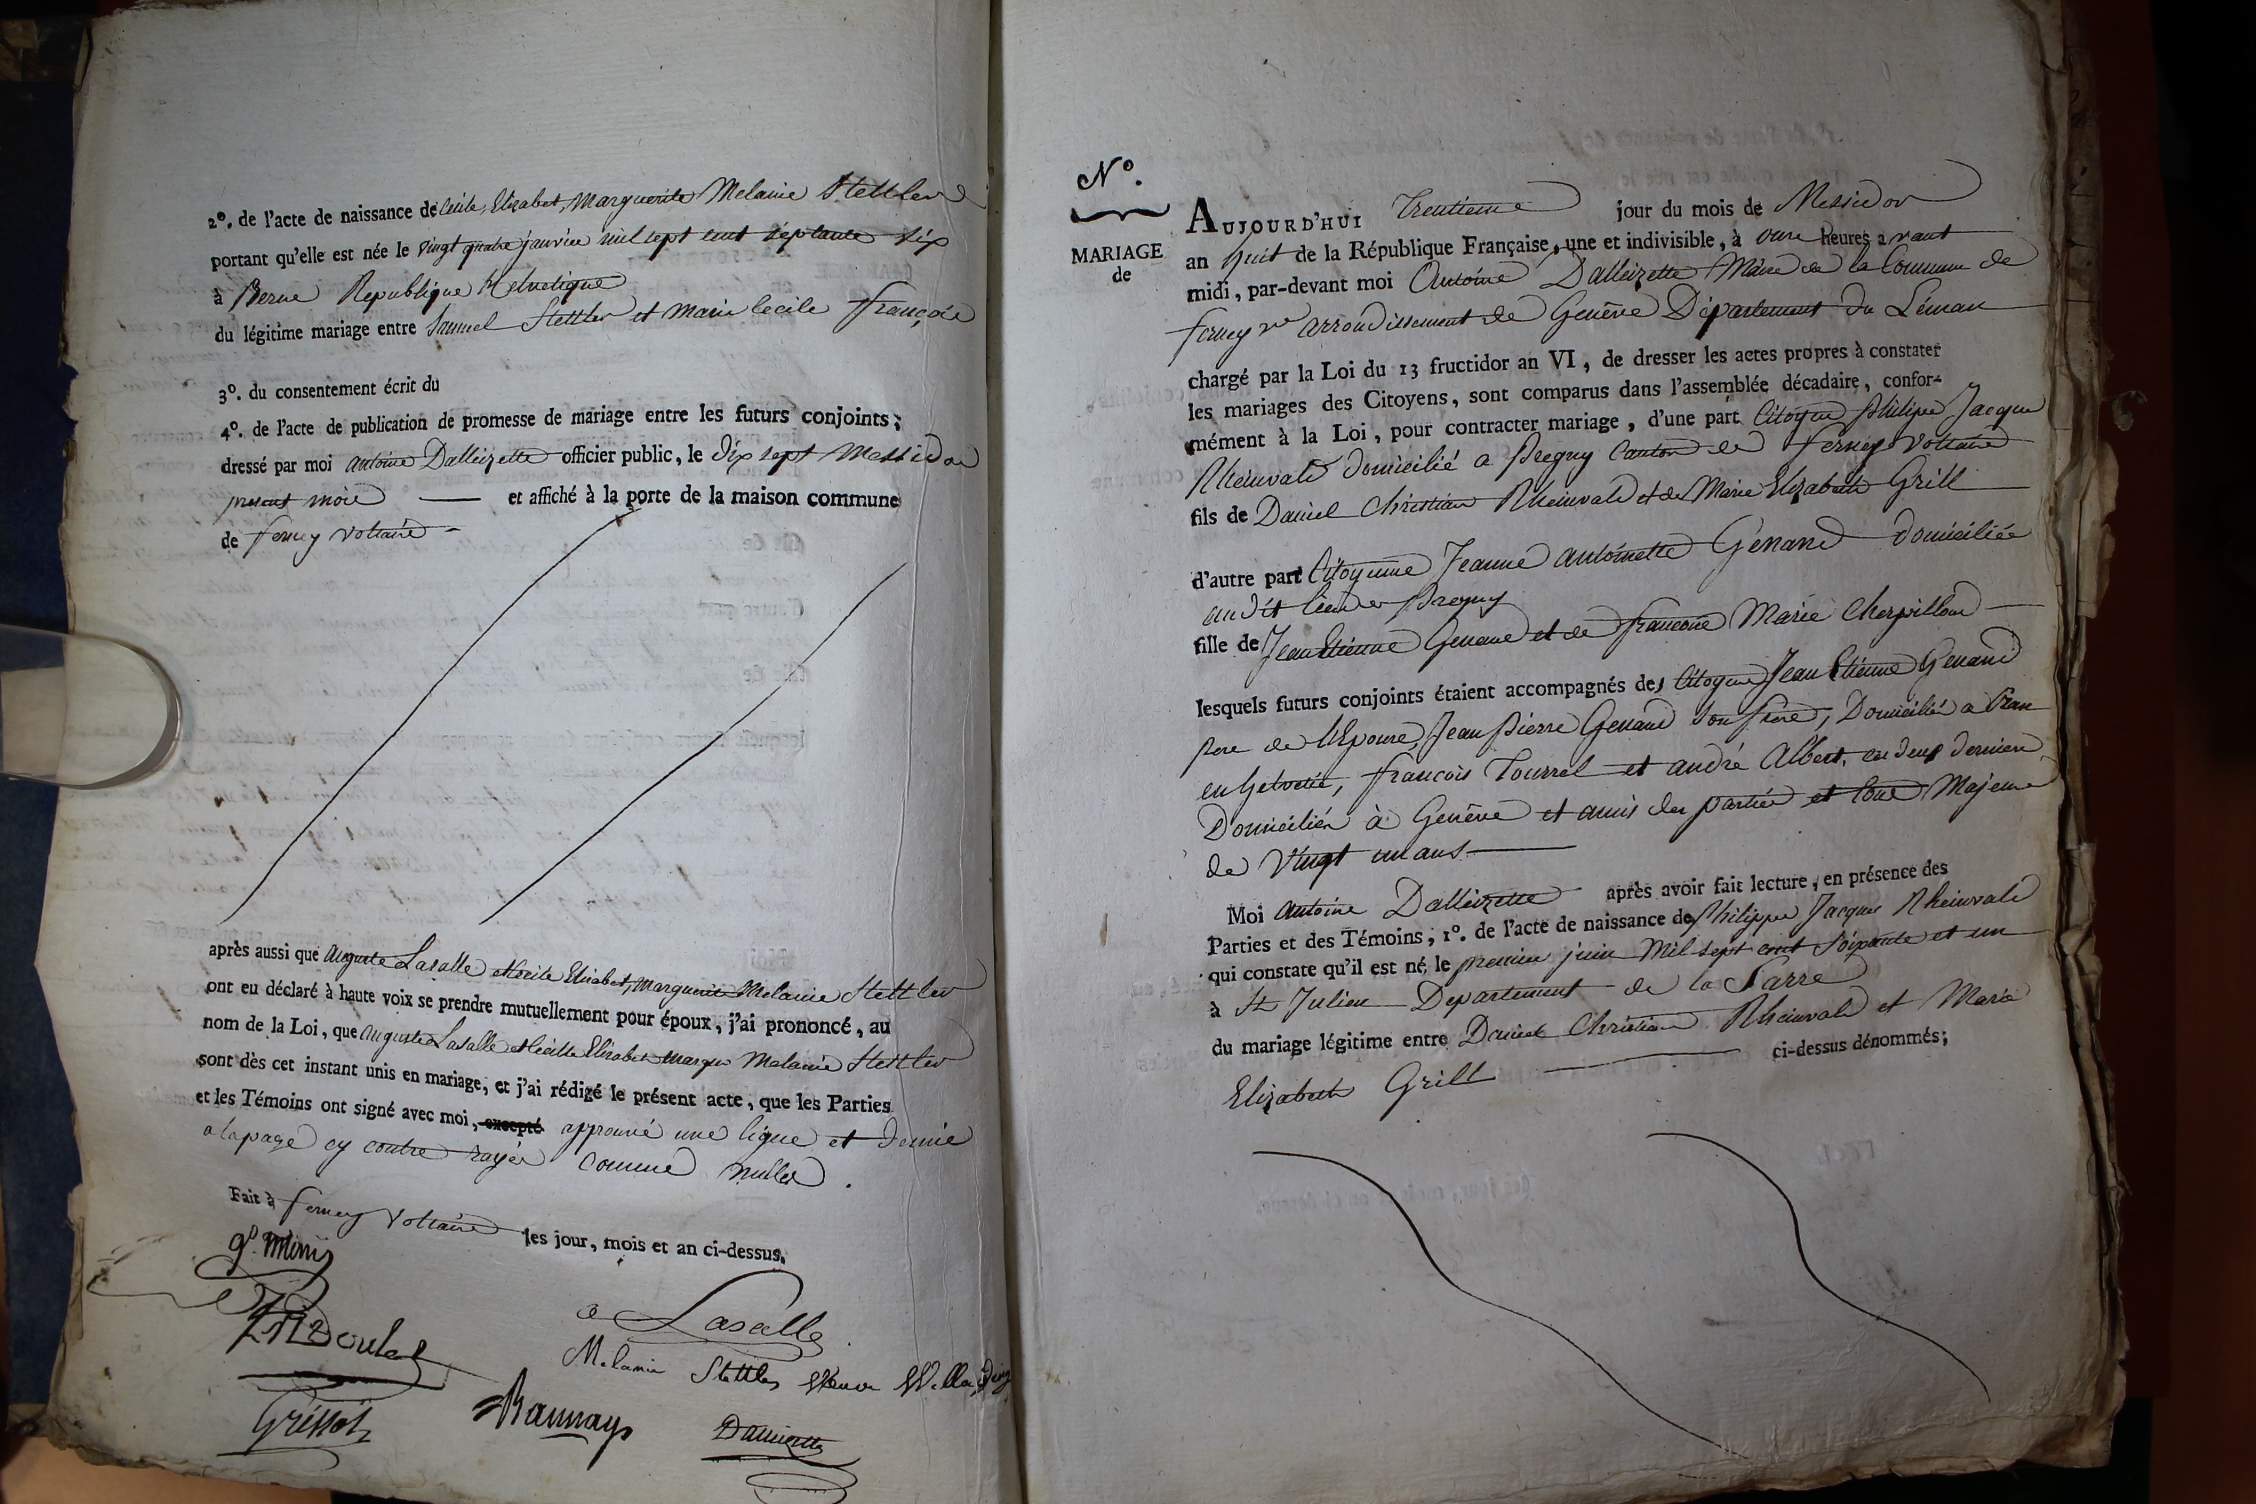 2º. de l'acte de naissance de Cécile, Elizabet, Marguerite Melanie Stettler
portant qu'elle est née le vingt quatre janvier mil sept cent séptante six
à Berne Republique helvetique
du légitime mariage entre Samuel Stettler et Marie Cecile françoise
3º. du consentement écrit du
4º. de l'acte de publication de promesse de mariage entre les futurs conjoints;
dressé par moi antoine Dalleizette officier public, le dix sept Messidor
present mois et affiché à la porte de la maison commune
de ferney voltaire
après aussi que auguste Lasalle et Cecile Elisabet, Marguerite Melanie Stettler
ont eu déclaré à haute voix se prendre mutuellement pour époux, j'ai prononcé, au
nom de la Loi, que auguste Lasalle et Cécille Elisabet Margte Melanie Stettler
sont dès cet instant unis en mariage, et j'ai rédigé le présent acte, que les Parties
et les Témoins ont signé avec moi, excepté approuvé une ligne et demie
a la page cy contre rayée comme nulle.
Fait à ferney Voltaire les jour, mois et an ci-dessus.
a Lasalle
Melanie Stettler
Nº.
MARIAGE
de
AUJOURD'HUI Trentieme jour du mois de Messidor
an huit de la République Française, une et indivisible, à onze heures avant
midi, par-devant moi Antoine Dalleizette Maire de la Commune de
ferney vre arrondissement de Genève Département du Léman
chargé par la Loi du 13 fructidor an VI, de dresser les actes propres à constater
les mariages des Citoyens, sont comparus dans l'assemblée décadaire, confor-
mément à la Loi, pour contracter mariage, d'une part Citoyen Philipe Jacques
Rheinvald domicilié a Pregny Canton de ferney voltaire
fils de Daniel Christian Rheinvald et de Marie Elizabeth Grill
d'autre part Citoyenne Jeanne antoinette Genand domiciliée
au dit lieu de Pregny
fille de Jean Etienne Genand et de francoise Marie Cherpilloud
lesquels futurs conjoints étaient accompagnés des Citoyens Jean Etienne Genand
Pere de l'Epouse, Jean Pierre Genand son frere, Domiciliés a
en helvetie, francois Tourrel et andré Albert, ces deux derniers
Domiciliés à Genève et amis des parties et tous Majeurs
de vingt un ans
Moi antoine Dalleizette après avoir fait lecture, en présence des
Parties et des Témoins, 1º. de l'acte de naissance de Philippe Jacques Rheinvald
qui constate qu'il est né, le premier juin Mil sept cent soixante et un
à St Julien Departement de la Sarre
du mariage légitime entre Daniel Christian Rheinvald et Marie
Elizabeth Grill ci-dessus dénommés;